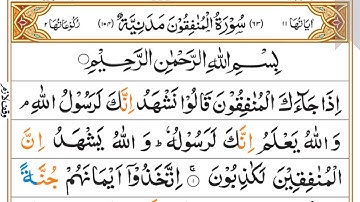 اٰیَاتُهَا ۱۱ (۶۳) سُوْرَةُ الْمُنٰفِقُوْنَ مَدَنِیَّةٌ (۱۰۴) رُكُوْعَاتُهَا ۲
بِسْمِ اللّٰهِ الرَّحْمٰنِ الرَّحِیْمِ
اِذَا جَآءَكَ الْمُنٰفِقُوْنَ قَالُوْا نَشْهَدُ اِنَّكَ لَرَسُوْلُ اللّٰهِ ۘ
وَ اللّٰهُ یَعْلَمُ اِنَّكَ لَرَسُوْلُهٗ ؕ وَ اللّٰهُ یَشْهَدُ اِنَّ
الْمُنٰفِقِیْنَ لَكٰذِبُوْنَ ۱ اِتَّخَذُوْۤا اَیْمَانَهُمْ جُنَّةً
وقف لازم